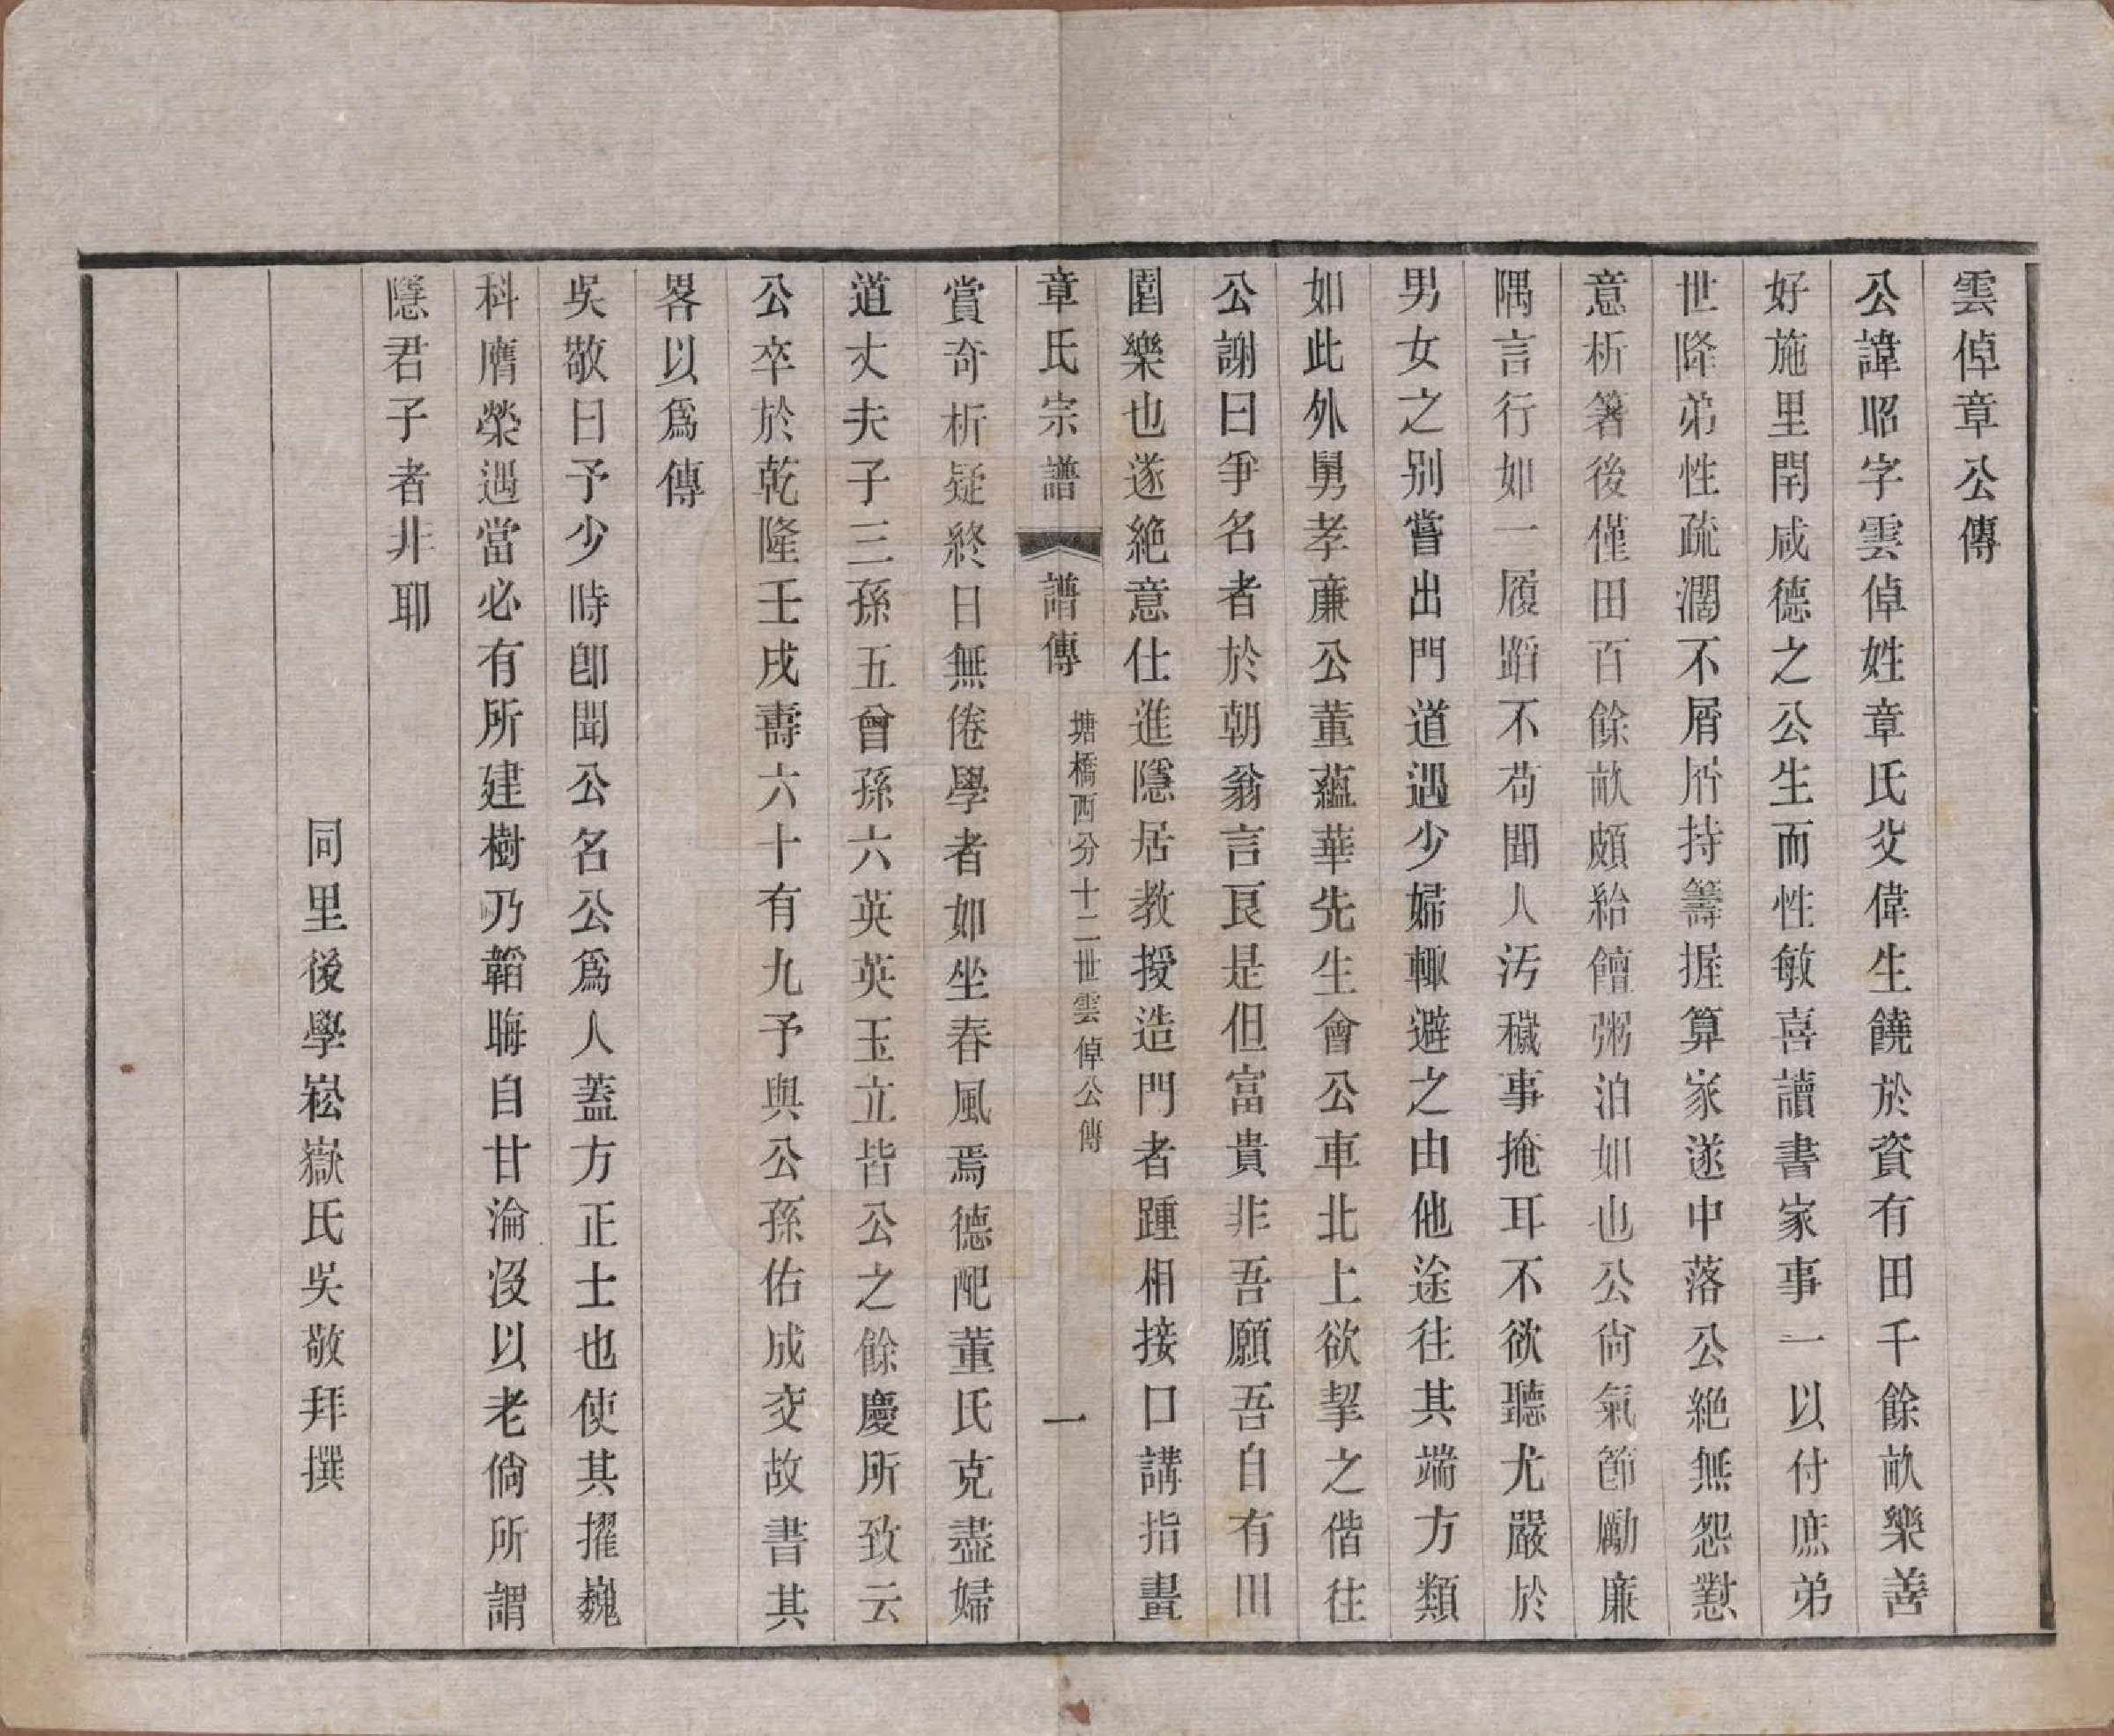 雲倬章公傳
公諱昭字雲倬姓章氏父偉生饒於資有田千餘畝樂善
好施里閈咸德之公生而性敏喜讀書家事一以付庶弟
世降弟性疏濶不屑屑持籌握算家遂中落公絶無怨懟
意析箸後僅田百餘畝頗給饘粥泊如也公尙氣節勵廉
隅言行如一履蹈不苟聞人汚穢事掩耳不欲聽尤嚴於
男女之别嘗出門道遇少婦輒避之由他途往其端方類
如此外舅孝廉公董蘊華先生會公車北上欲挈之偕往
公謝曰爭名者於朝翁言良是但富貴非吾願吾自有川
園樂也遂絶意仕進隱居教授造門者踵相接口講指畫
章氏宗譜 譜傳 塘橋西分十二世雲倬公傳 一
賞奇析疑終日無倦學者如坐春風焉德配董氏克盡婦
道丈夫子三孫五曾孫六英英玉立皆公之餘慶所致云
公卒於乾隆壬戌壽六十有九予與公孫佑成交故書其
畧以爲傳
吳敬曰予少時卽聞公名公爲人蓋方正士也使其擢巍
科膺榮遇當必有所建樹乃韜晦自甘淪沒以老倘所謂
隱君子者非耶
同里後學崧嶽氏吳敬拜撰